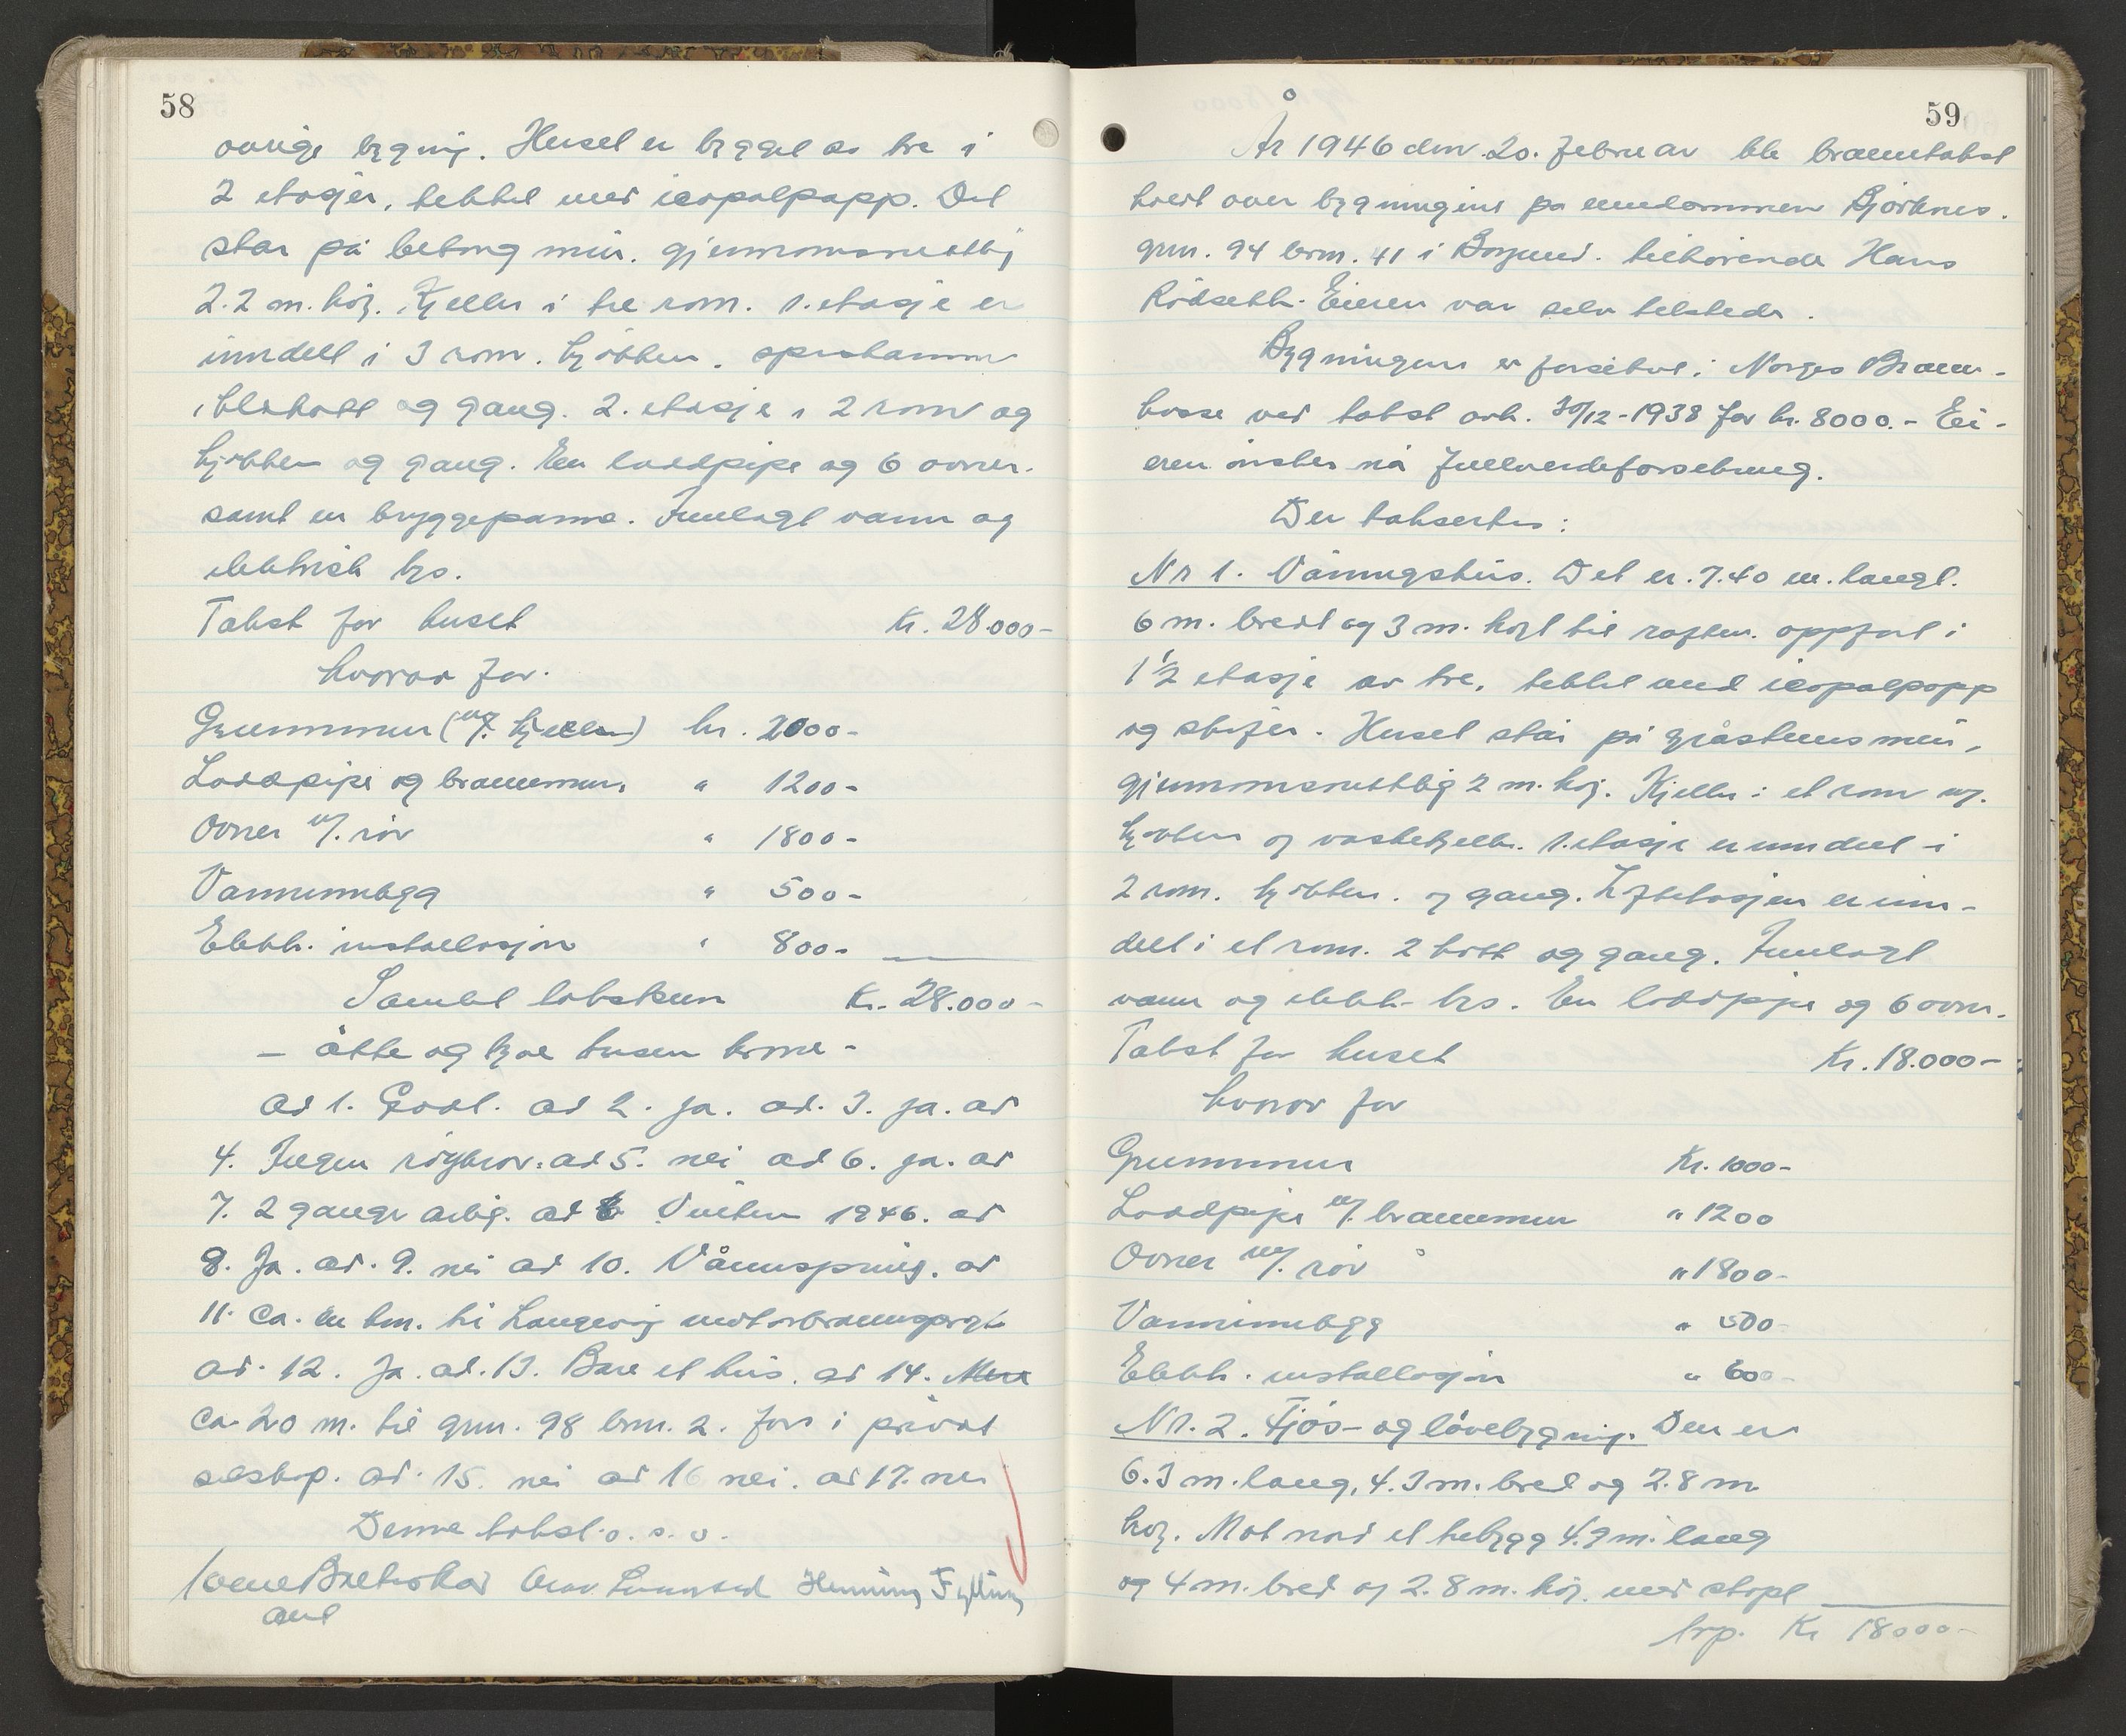 58
øvrige bygning. Huset er bygget av tre i
2 etasjer, tekket med icopalpapp. Det
står på betong mur, gjennomsnittlig
2.2 m. høg. Kjeller i tre rom. 1. etasje er
inndelt i 3 rom, kjøkken, spiskammer
, og gang. 2. etasje i 2 rom og
kjøkken og gang. En loddpipe og 6 ovner
samt en bryggepanne. Innlagt vann og
elektrisk lys.
Takst for huset Kr. 28.000-
hvorav for.
Grunnmur (m/. kjeller) kr. 2000-
Loddpipe og brannmur, " 1200-
Ovner m/. rör " 1800-
Vanninnlegg " 500-
Elektr. installasjon " 800-
Samlet takstsum Kr. 28.000-
- åtte og tyve tusen kroner -
ad 1. Godt. ad 2. ja. ad. 3. ja. ad
4. Ingen ad 5. nei ad 6. ja. ad
7. 2 gange årlig. ad Vinteren 1946. ad
8. Ja. ad. 9. nei ad 10. Vannspring. ad
11. Ca. en km. til Langevåg motorbrannsprøyte
ad. 12. Ja. ad. 13. Bare et hus. ad 14.
Ca. 20 m. til gnr. 98 brn. 2. fors. i privat
selskap. ad. 15. nei ad 16 nei. ad 17. nei
Denne takst o. s. v.
Henning Fylling
59
År 1946 den 20. februar ble branntakst
holdt over bygningene på eiendommen Bjørknes.
gnr. 94 brn. 41 i Borgund. tilhørende Hans
Rödseth. Eieren var selv tilstede.
Bygningene er forsikret i Norges Brann-
kasse ved takst avh. 30/12-1938 for kr. 8000.- Ei-
eren önsker nå fullverdiforsikring.
Der taksertes:
Nr 1. Våningshus. Det er 7.40 m. langt.
6 m. bredt og 3 m. högt til raften. oppfört i
1 1/2 etasje av tre, tekket med icopalpapp
og skifer. Huset står på gråstensmur,
gjennomsnittlig 2 m. høg. Kjeller i et rom m/.
kjøkken og vaskekjeller. 1. etasje er inndelt i
2 rom, kjøkken, og gang. Loftetasjen er inn-
delt i et rom, 2 kott og gang. Innlagt
vann og elektr. lys. En loddpipe og 6 ovner.
Takst for huset Kr. 18.000-
hvorav for
Grunnmur Kr. 1000-
Loddpipe m/. brannmur " 1200
Ovner m/. rör " 1800-
Vanninnlegg " 500-
Elektr. installasjon " 600-
Nr. 2. Fjös- og lövebygning. Den er
6.3 m. lang, 4.3 m. bred og 2.8 m
høg. Mot nord et tilbygg 4.9 m. lang
og 4 m. bred og 2.8 m. høg. med støpt
trp. Kr 18000-